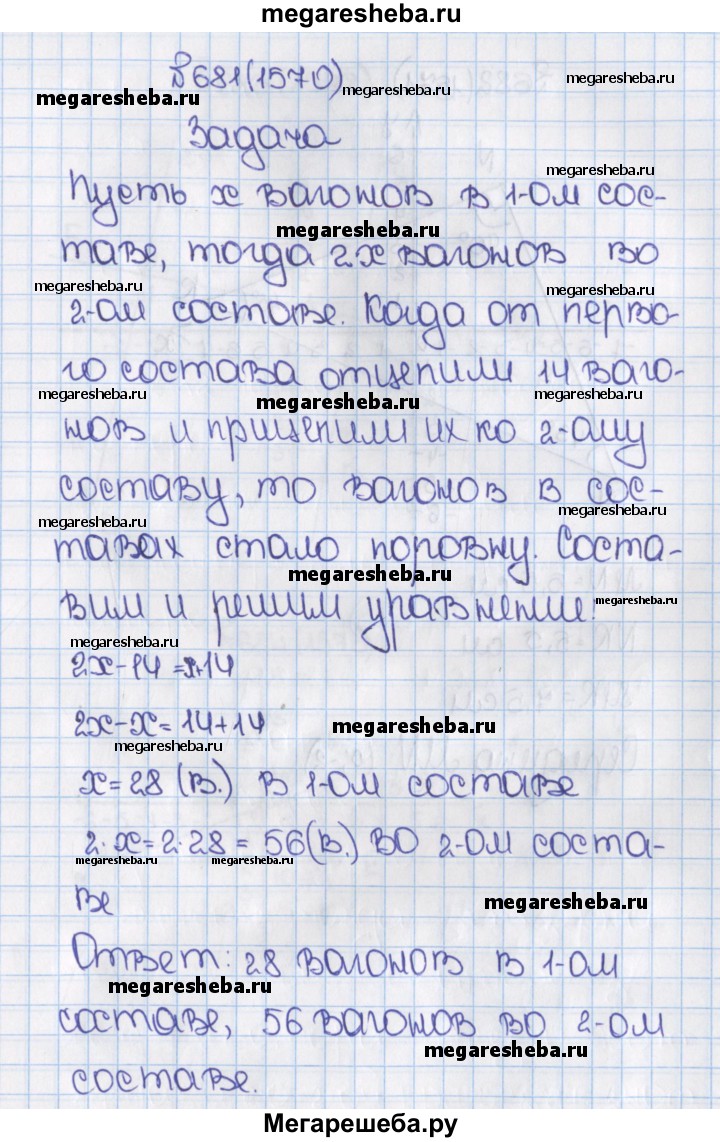 megaresheba.ru
№681(1570)
megaresheba.ru megaresheba.ru megaresheba.ru
Задача
megaresheba.ru
Пусть x вагонов в 1-ом сос-
megaresheba.ru
таве, тогда 2x вагонов во
megaresheba.ru megaresheba.ru
2-ом составе. Когда от перво-
го состава отцепили 14 ваго-
megaresheba.ru megaresheba.ru megaresheba.ru
нов и прицепили их ко 2-ому
составу, то вагонов в сос-
megaresheba.ru megaresheba.ru
тавах стало поровну. Соста-
megaresheba.ru
вим и решим уравнение:
megaresheba.ru
megaresheba.ru
2x-14=x+14
2x-x=14+14
megaresheba.ru
megaresheba.ru
x=28 (в.) в 1-ом составе
2·x=2·28=56(в.) во 2-ом соста-
megaresheba.ru megaresheba.ru
ве
megaresheba.ru
Ответ: 28 вагонов в 1-ом
megaresheba.ru
составе, 56 вагонов во 2-ом
megaresheba.ru
составе.
Мегарешеба.ру